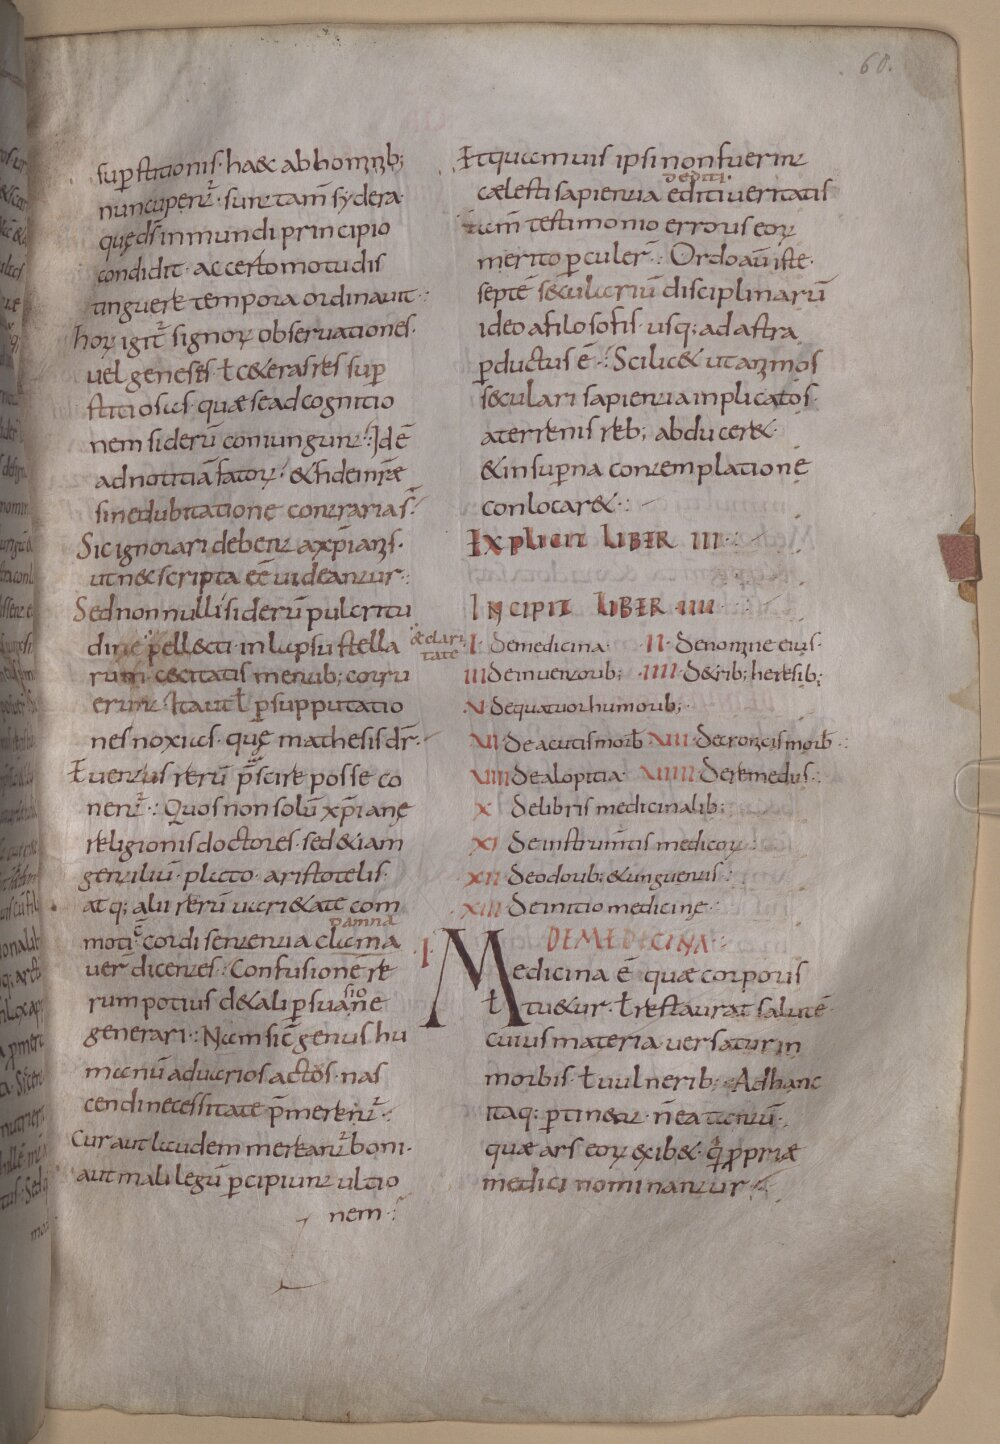 60.
sup̄stitionis· ha& abhominib;
nuncupent᷒· sunt tam̄ sydera·
quę dš inmundi principio
condidit· ac certo motu dis
tinguere tempora ordinauit·:
horꝝ igit᷒ signorꝝ obseruationes·
uel geneses· ł c&eras res sup̄
stitiosas· quæ se ad cognitio
nem siderū coniungunt·: Id ē
ad notitiā fatorꝝ· & fidei nr̄æ
sine dubitatione contrarias·
Sic ignorari debent axp̄ianis·
ut nec scripta ēē uideantur·:
Sed non nulli siderū pulcritu
dine pell&cti inlapsu stella
& clari
tate
rum· cęcitatis mentib; corru
erunt· Ita ut ł p̄supputatio
nes noxias· quę mathesis dr̄·
Euentus rerū p̄scire posse co
nent᷒·: Quos non solū xp̄ianę
religionis doctores· sed &iam
gentiliū· plato· aristotelis·
atq; alii rerū ueri&ate com
damna
moti ccordi sententia clama
uer̄ dicentes·: Confusionē re
rum potius de tali p̄suasione
generari·: Nam sic̄ genus hu
manū aduarios actos· nas
cendi necessitate p̄merent᷒·:
Cur aut laudem mereant᷒ boni·
aut mali legū p̄cipiunt ultio
nem·:
Et quamuis ipsi non fuerint
dediti·
cælesti sapientia editi ueritatis
tam̄ testimonio errores eorꝝ
merito p̄culer̄·: Ordo aū iste·
septē sęculariū disciplinarū
ideo afilosofis· usq; ad astra
p̄ductus ē·: Scilic& ut animos
sęculari sapientia inplicatos·
aterrenis reb; abducer&·
& insup̄na contemplatione
conlocar&·:
Explicit LIBER III·
Incipit LIBER IIII
I· De medicina· II· De nomine eius·
III De inuentorib; IIII· D& rib; heresib;
V· De quatuor humorib;·
VI· De acutis morb̄ VII· De cronicis morb̄·:
VIII De alopitia· VIIII De remediis·:
X De libris medicinalib;
XI De instrum̄tis medicorꝝ
XII De odorib; & unguentis·:
XIII De initio medicinę·
I· DE MEDICINA·
Medicina ē· quæ corporis
ł tu&ur· ł restaurat salutē·
cuius materia uersatur in
morbis· ł uulnerib;· Ad hanc
itaq; p̄tinent· n̄ ea tantū·
quæ ars eorꝝ exib&· q̄ p̄priæ
medici nominantur·